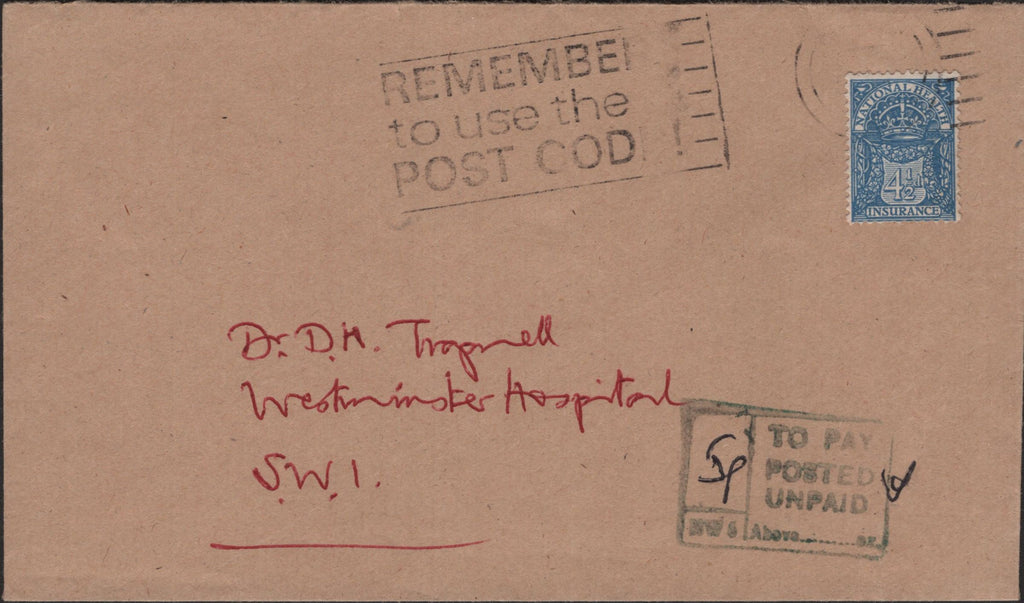 REMEMBE
to use the
POST COD !
NATIONAL HEALTH
4½d
INSURANCE
Dr. D.H. Trapnell
Westminster Hospital
S.W.1.
5p
TO PAY
POSTED
UNPAID
NW 6 Above.........oz.